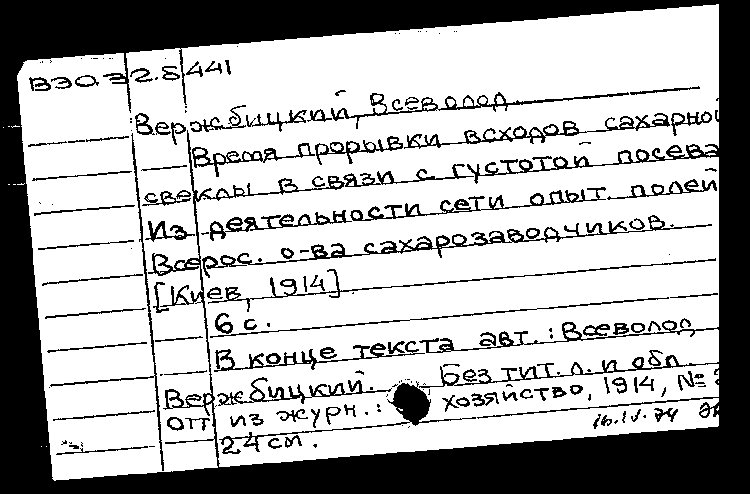 ВЭО.З2.8441
Вержбицкий, Всеволод
Время прорывки всходов сахарной
свеклы в связи с густотой посева
Из деятельности сети опыт. полей
Всерос. о-ва сахарозаводчиков.
[Киев, 1914]
6 с.
В конце текста авт.: Всеволод
Вержбицкий. Без тит. л. и обл.
Отт из журн.: хозяйство, 1914, №
24 см.